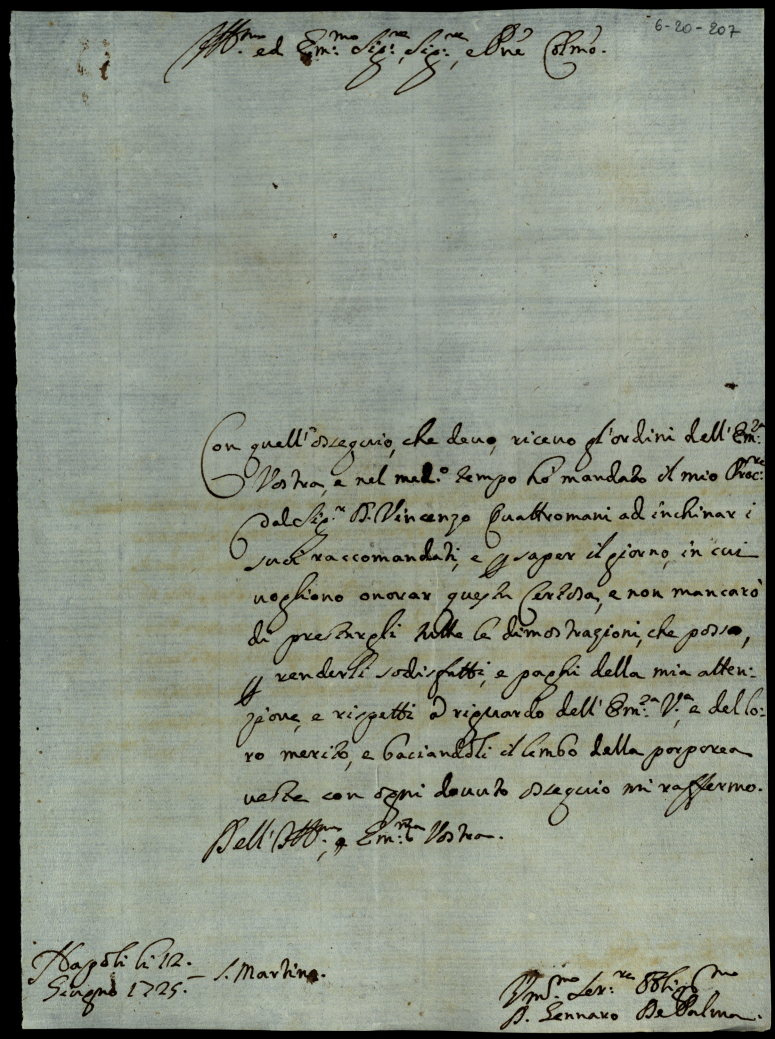 6-20-207
Ill.mo ed Em.mo Sig.re, Sig.re, e Pñe Colmo.
Con quell'ossequio, che devo, ricevo gl'ordini dell'Em.za
Vostra, e nel med.o tempo hò mandato il mio Proc.re
dal Sig.r D. Vincenzo Quattromani ad inchinar i
suoi raccomandati, e ꝑ saper il giorno, in cui
vogliono onorar questa Certosa, e non mancarò
di prestargli tutte le dimostrazioni, che posso,
ꝑ renderli sodisfatti, e paghi della mia atten:
zione, e rispetti à riguardo dell'Em.za V.a, e del lo:
ro merito, e baciandoli il lembo della porporea
veste con ogni dovuto ossequio mi raffermo.
Dell'Ill.ma, e Em.za Vostra.
Napoli li 12.
Giugno 1725. – S. Martino.
Um.mo Ser.re Obligmo
D. Gennaro De Palma.